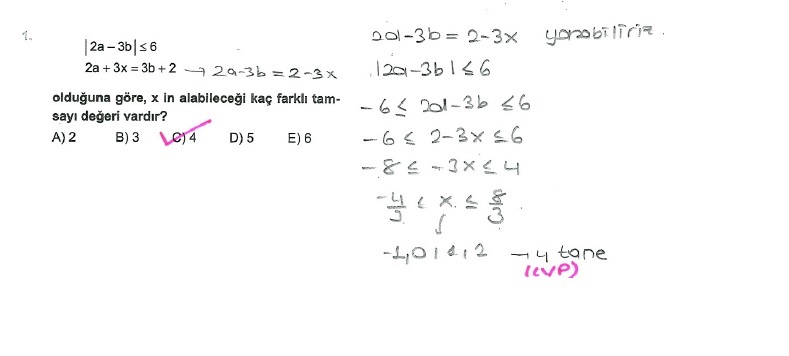 1.
|2a – 3b| ≤ 6
2a + 3x = 3b + 2 → 2a-3b = 2-3x
olduğuna göre, x in alabileceği kaç farklı tam-
sayı değeri vardır?
A) 2 B) 3 C) 4 D) 5 E) 6
2a-3b = 2-3x yazabiliriz.
|2a-3b| ≤ 6
-6 ≤ 2a-3b ≤ 6
-6 ≤ 2-3x ≤ 6
-8 ≤ -3x ≤ 4
-4/3 ≤ x ≤ 8/3
-1,0,1,2 → 4 tane
(CVP)